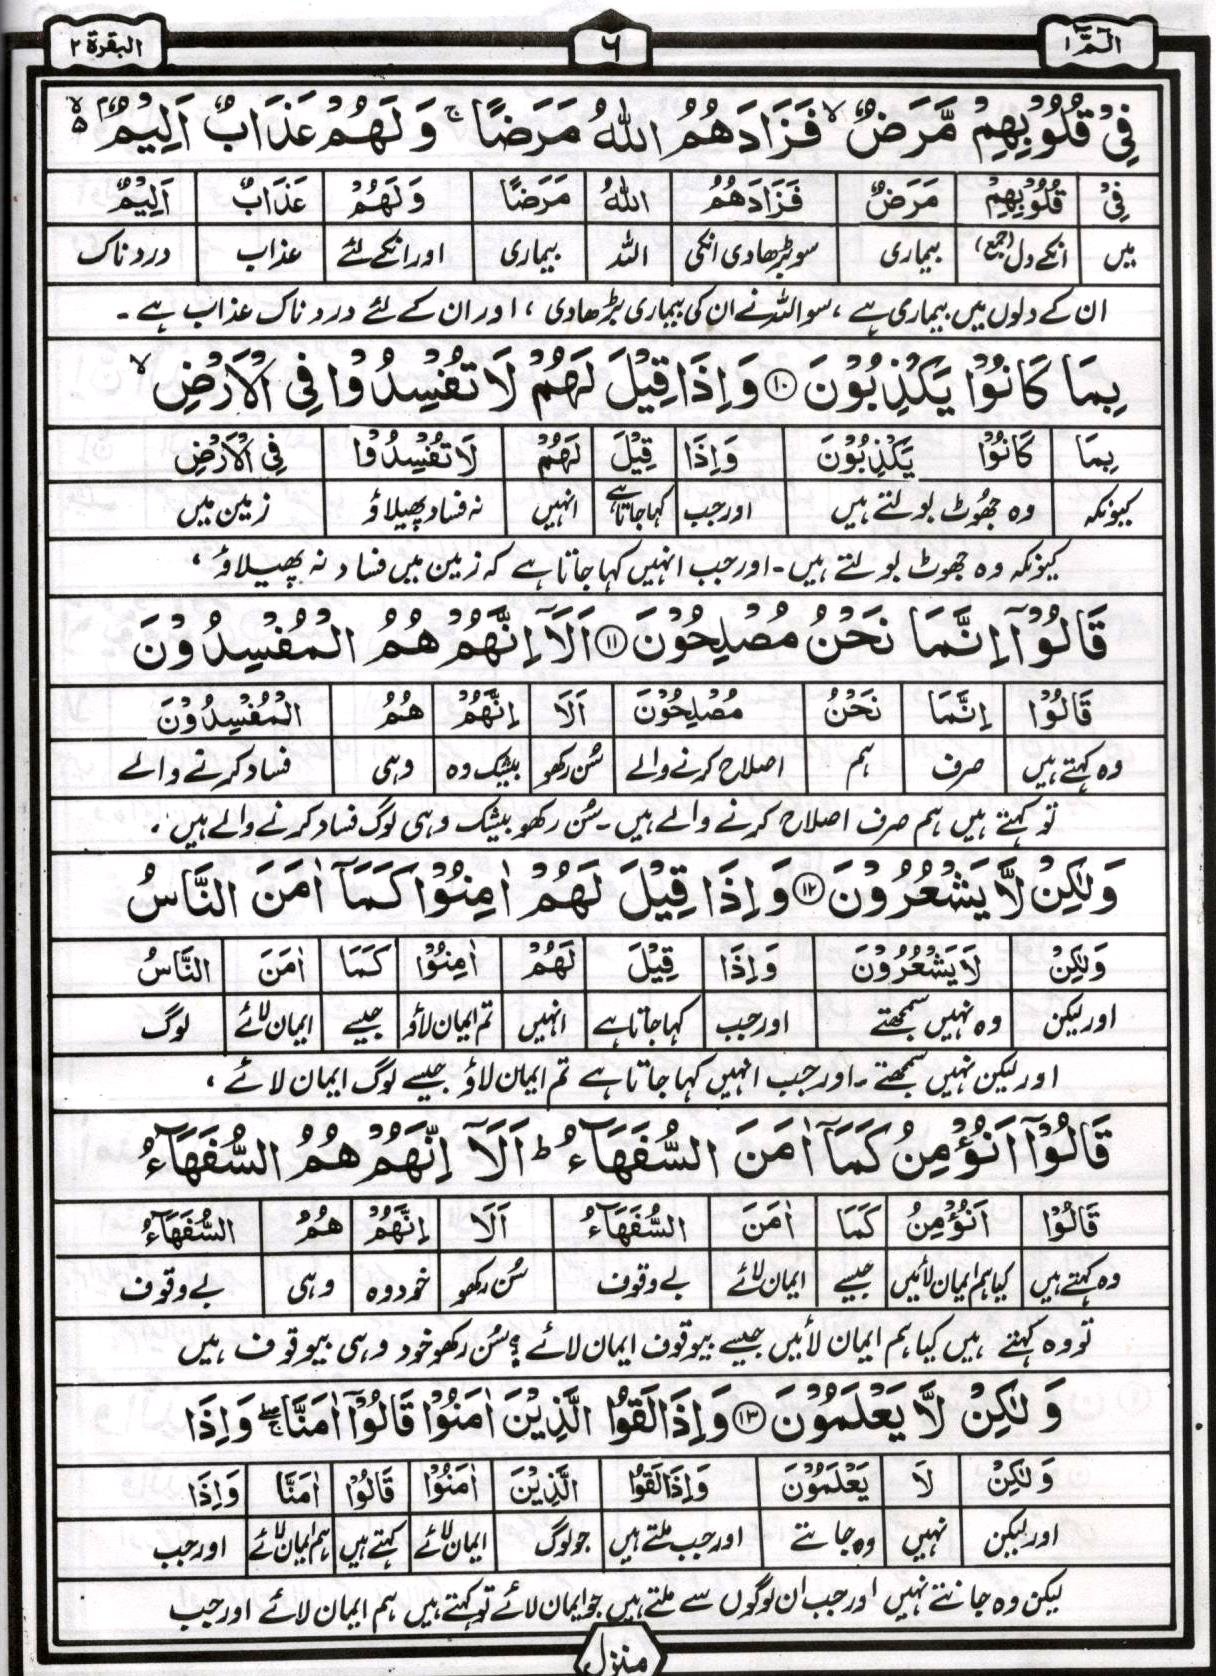 الٓمّٓ ۱
۶
البقرة ۲
فِیْ قُلُوْبِهِمْ مَّرَضٌ ۙ فَزَادَهُمُ اللّٰهُ مَرَضًا ۚ وَلَهُمْ عَذَابٌ اَلِیْمٌ ۢ ۙ۬
فِیْ قُلُوْبِهِمْ مَرَضٌ فَزَادَهُمُ اللّٰهُ مَرَضًا وَلَهُمْ عَذَابٌ اَلِیْمٌ
میں انکے دل (جمع) بیماری سو بڑھا دی انکی اللہ بیماری اور انکے لئے عذاب دردناک
ان کے دلوں میں بیماری ہے ، سو اللہ نے ان کی بیماری بڑھا دی ، اور ان کے لئے دردناک عذاب ہے ۔
بِمَا كَانُوْا یَكْذِبُوْنَ ۝۱۰ وَاِذَا قِیْلَ لَهُمْ لَا تُفْسِدُوْا فِی الْاَرْضِ ۙ
بِمَا كَانُوْا یَكْذِبُوْنَ وَاِذَا قِیْلَ لَهُمْ لَا تُفْسِدُوْا فِی الْاَرْضِ
کیونکہ وہ جھوٹ بولتے ہیں اور جب کہا جاتا ہے انہیں نہ فساد پھیلاؤ زمین میں
کیونکہ وہ جھوٹ بولتے ہیں ۔ اور جب انہیں کہا جاتا ہے کہ زمین میں فساد نہ پھیلاؤ ،
قَالُوْۤا اِنَّمَا نَحْنُ مُصْلِحُوْنَ ۝۱۱ اَلَاۤ اِنَّهُمْ هُمُ الْمُفْسِدُوْنَ
قَالُوْا اِنَّمَا نَحْنُ مُصْلِحُوْنَ اَلَا اِنَّهُمْ هُمُ الْمُفْسِدُوْنَ
وہ کہتے ہیں صرف ہم اصلاح کرنے والے سُن رکھو بیشک وہ وہی فساد کرنے والے
تو کہتے ہیں ہم صرف اصلاح کرنے والے ہیں ۔ سُن رکھو بیشک وہی لوگ فساد کرنے والے ہیں ،
وَلٰكِنْ لَّا یَشْعُرُوْنَ ۝۱۲ وَاِذَا قِیْلَ لَهُمْ اٰمِنُوْا كَمَاۤ اٰمَنَ النَّاسُ
وَلٰكِنْ لَا یَشْعُرُوْنَ وَاِذَا قِیْلَ لَهُمْ اٰمِنُوْا كَمَا اٰمَنَ النَّاسُ
اور لیکن وہ نہیں سمجھتے اور جب کہا جاتا ہے انہیں تم ایمان لاؤ جیسے ایمان لائے لوگ
اور لیکن نہیں سمجھتے ۔ اور جب انہیں کہا جاتا ہے تم ایمان لاؤ جیسے لوگ ایمان لائے ،
قَالُوْۤا اَنُؤْمِنُ كَمَاۤ اٰمَنَ السُّفَهَآءُ ؕ اَلَاۤ اِنَّهُمْ هُمُ السُّفَهَآءُ
قَالُوْا اَنُؤْمِنُ كَمَا اٰمَنَ السُّفَهَآءُ اَلَا اِنَّهُمْ هُمُ السُّفَهَآءُ
وہ کہتے ہیں کیا ہم ایمان لائیں جیسے ایمان لائے بے وقوف سُن رکھو خود وہ وہی بے وقوف
تو وہ کہتے ہیں کیا ہم ایمان لائیں جیسے بیوقوف ایمان لائے ؟ سُن رکھو خود وہی بیوقوف ہیں
وَلٰكِنْ لَّا یَعْلَمُوْنَ ۝۱۳ وَاِذَا لَقُوا الَّذِیْنَ اٰمَنُوْا قَالُوْۤا اٰمَنَّا ۖۚ وَاِذَا
وَلٰكِنْ لَا یَعْلَمُوْنَ وَاِذَا لَقُوا الَّذِیْنَ اٰمَنُوْا قَالُوْا اٰمَنَّا وَاِذَا
اور لیکن نہیں وہ جانتے اور جب ملتے ہیں جو لوگ ایمان لائے کہتے ہیں ہم ایمان لائے اور جب
لیکن وہ جانتے نہیں اور جب ان لوگوں سے ملتے ہیں جو ایمان لائے تو کہتے ہیں ہم ایمان لائے اور جب
منزل